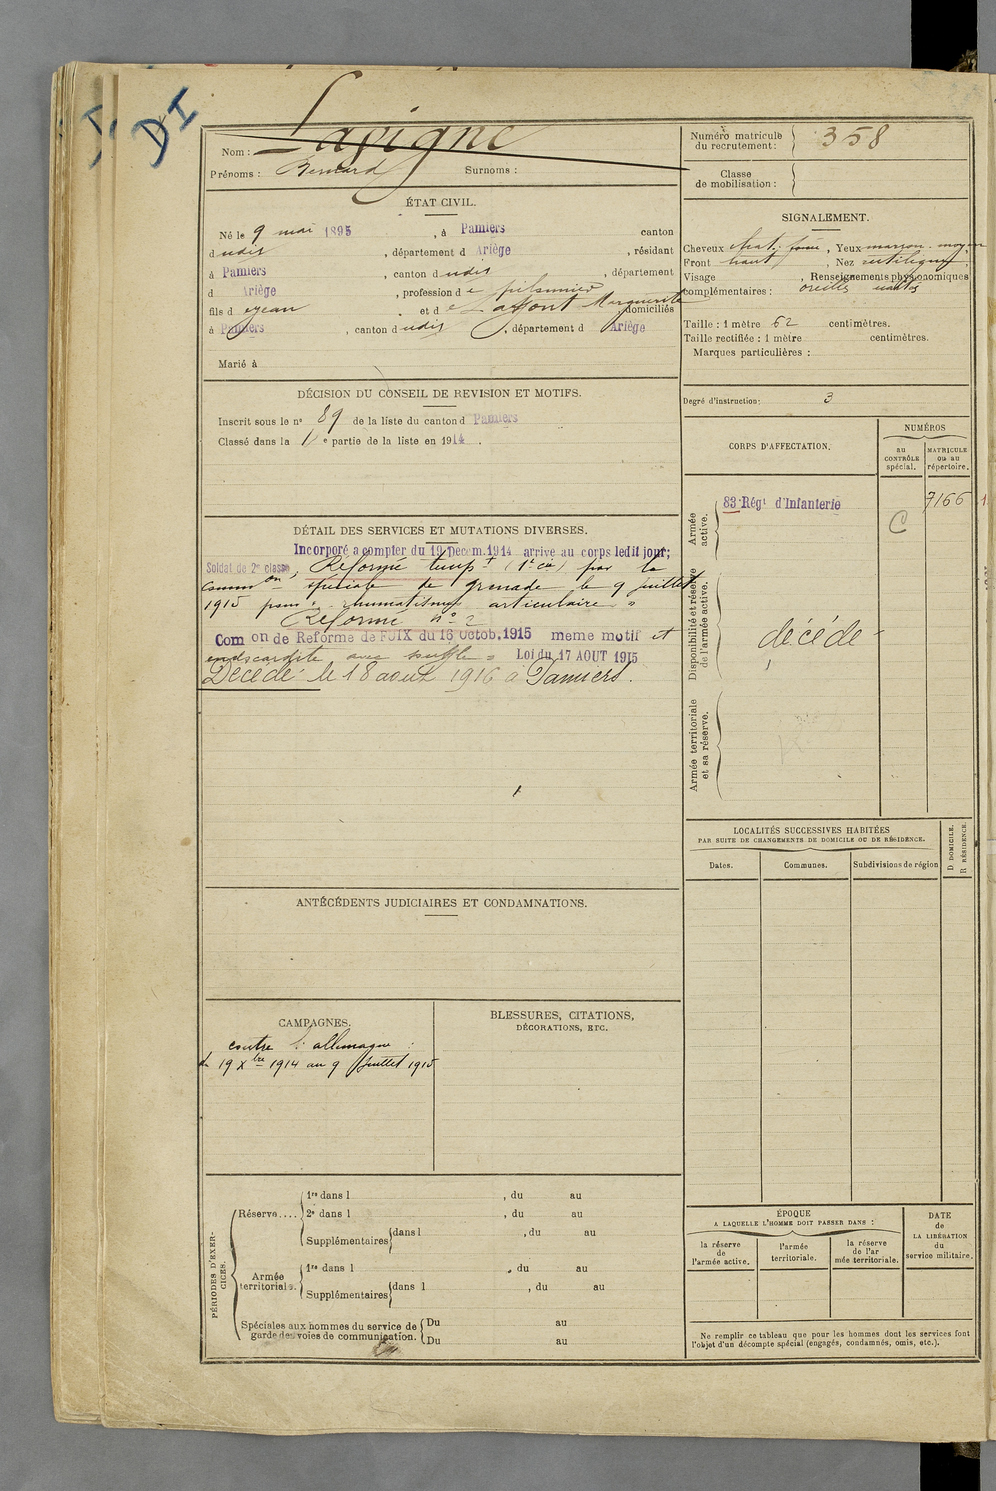 DI
Nom : Lapigne
Prénoms : Bernard Surnoms :
Numéro matricule du recrutement : 358
Classe de mobilisation :
ÉTAT CIVIL.
Né le 9 mai 1895, à Pamiers canton
dudit, département d Ariège, résidant
à Pamiers, canton dudit, département
d Ariège, profession de
fils d Jean et de Laffont Marguerite domiciliés
à Pamiers, canton dudit, département d Ariège
Marié à
SIGNALEMENT.
Cheveux chat. foncé, Yeux marron moyen
Front haut, Nez rectiligne
Visage , Renseignements physionomiques
complémentaires : oreilles
Taille : 1 mètre 62 centimètres.
Taille rectifiée : 1 mètre centimètres.
Marques particulières :
Degré d'instruction : 3
DÉCISION DU CONSEIL DE REVISION ET MOTIFS.
Inscrit sous le n° 89 de la liste du canton d Pamiers
Classé dans la 1e partie de la liste en 1914.
DÉTAIL DES SERVICES ET MUTATIONS DIVERSES.
Incorporé a compter du 19 Decem. 1914 arrivé au corps ledit jour;
Soldat de 2e classe, Réformé tempt (1e cie) par la
common spéciale de Grenade le 9 juillet
1915 pour : rhumatisme articulaire »
Réformé n° 2
Comon de Réforme de FOIX du 16 Octob. 1915 meme motif et
endocardite avec souffle » Loi du 17 AOUT 1915
Décédé le 18 aout 1916 à Pamiers.
CORPS D'AFFECTATION.
NUMÉROS
au CONTRÔLE spécial.
MATRICULE ou au répertoire.
Armée active.
83e Régt d'Infanterie
C
7166
Disponibilité et réserve de l'armée active.
décédé
Armée territoriale et sa réserve.
LOCALITÉS SUCCESSIVES HABITÉES
PAR SUITE DE CHANGEMENTS DE DOMICILE OU DE RÉSIDENCE.
Dates. Communes. Subdivisions de région
D. DOMICILE.
R. RÉSIDENCE.
ANTÉCÉDENTS JUDICIAIRES ET CONDAMNATIONS.
CAMPAGNES.
contre l'allemagne :
du 19 Xbre 1914 au 9 juillet 1915
BLESSURES, CITATIONS,
DÉCORATIONS, ETC.
PÉRIODES D'EXERCICES.
Réserve....
1re dans l , du au
2e dans l , du au
Supplémentaires dans l , du au
Armée territoriale.
1re dans l , du au
Supplémentaires dans l , du au
Spéciales aux hommes du service de
garde des voies de communication.
Du au
Du au
ÉPOQUE
A LAQUELLE L'HOMME DOIT PASSER DANS :
la réserve de l'armée active.
l'armée territoriale.
la réserve de l'ar mée territoriale.
DATE
de
LA LIBÉRATION
du
service militaire.
Ne remplir ce tableau que pour les hommes dont les services font
l'objet d'un décompte spécial (engagés, condamnés, omis, etc.).